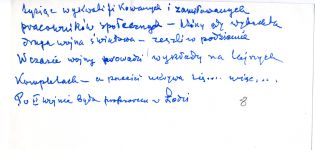 tysiąc wykwalifikowanych i zamiłowanych
pracowników społecznych – którzy gdy wybuchła
druga wojna światowa – zeszli w podziemie
W czasie wojny prowadzi wykłady na tajnych
Kompletach – a przecież ukrywa się.... więc,..
Po II wojnie będzie profesorem w Łodzi
8